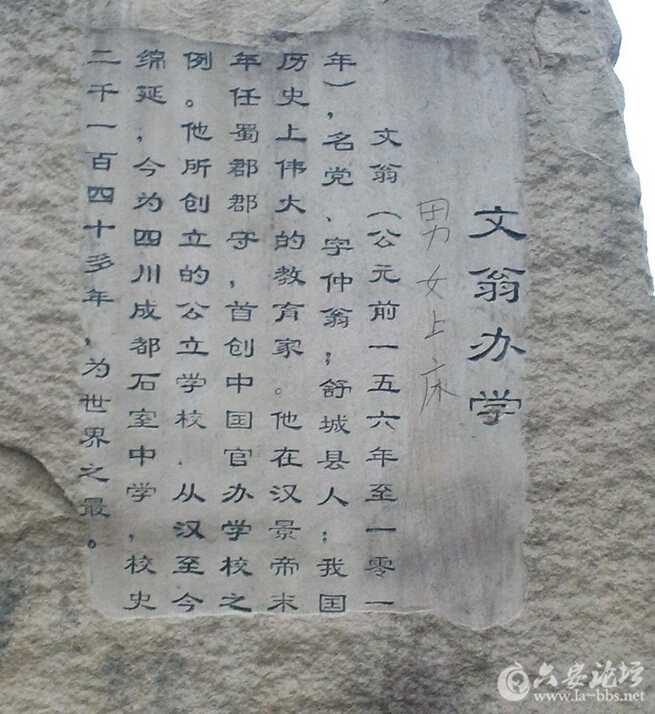 文翁办学
男女上床
文翁（公元前一五六年至一零一
年），名党、字仲翁；舒城县人；我国
历史上伟大的教育家。他在汉景帝末
年任蜀郡郡守，首创中国官办学校之
例。他所创立的公立学校.从汉至今
绵延，今为四川成都石室中学，校史
二千一百四十多年，为世界之最。
六安论坛
www.la-bbs.net